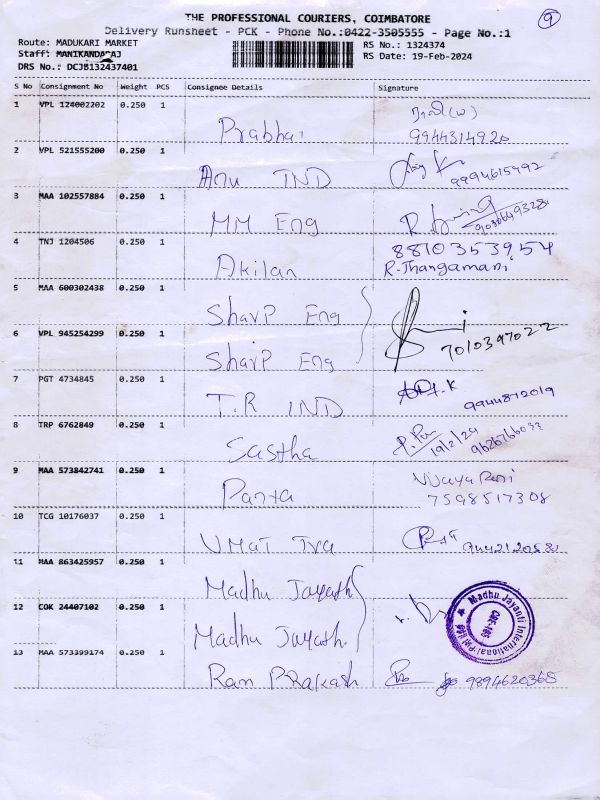 9
THE PROFESSIONAL COURIERS, COIMBATORE
Delivery Runsheet - PCK - Phone No.:0422-3505555 - Page No.:1
Route: MADUKARI MARKET
RS No.: 1324374
Staff: MANIKANDARAJ
RS Date: 19-Feb-2024
DRS No.: DCJB132437401
S No Consignment No Weight PCS Consignee Details Signature
1 VPL 124002202 0.250 1 Prabhai
9944314920
2 VPL 521555200 0.250 1 Anu IND
9994615992
3 MAA 102557884 0.250 1 MM Eng
4 TNJ 1204506 0.250 1 Akilan 8810353954
R-Thangamani
5 MAA 600302438 0.250 1 Sharp Eng
6 VPL 945254299 0.250 1 Sharp Eng 7010397022
7 PGT 4734845 0.250 1 T.R IND
8 TRP 6762849 0.250 1 Sastha 19/2/24 9626766033
9 MAA 573842741 0.250 1 Vijaya Rani
7598517308
10 TCG 10176037 0.250 1
11 MAA 863425957 0.250 1 Madhu Jayath
12 COK 24407102 0.250 1 Madhu Jayath.
Madhu Jayanti International Pvt Ltd
CBE-105
13 MAA 573399174 0.250 1 Ram Prakash 9894620368